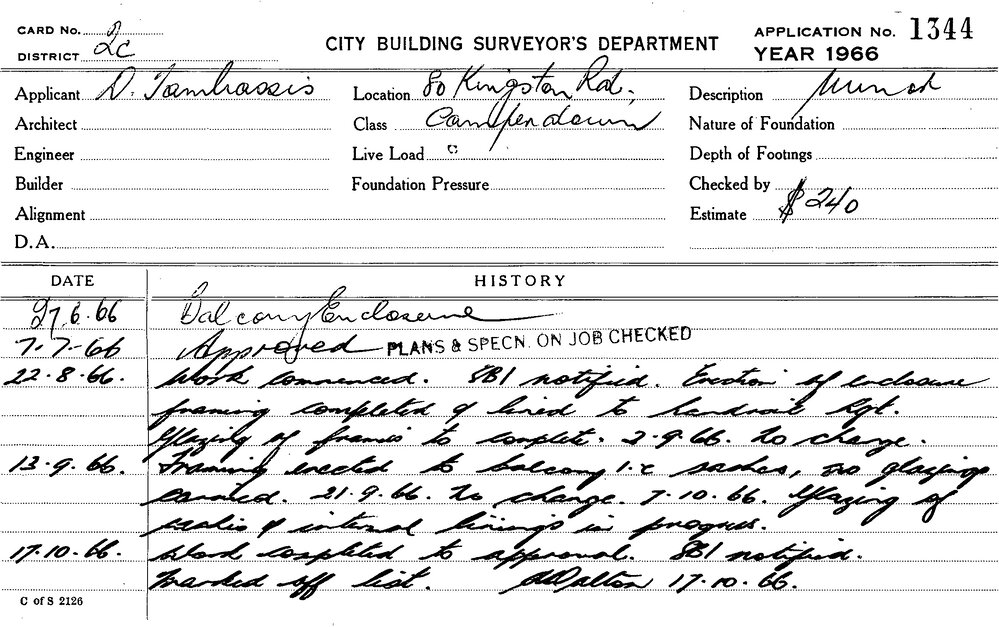 CARD No. 2
DISTRICT 2C
CITY BUILDING SURVEYOR'S DEPARTMENT
APPLICATION No. 1344
YEAR 1966
Applicant D. Tambassis
Location 80 Kingston Rd.
Description
Architect
Class Camperdown
Nature of Foundation
Engineer
Live Load
Depth of Footings
Builder
Foundation Pressure
Checked by
Alignment
Estimate $240
D.A.
DATE HISTORY
27.6.66 Balcony Enclosure
7-7-66 Approved PLANS & SPECN. ON JOB CHECKED
22.8.66. Work commenced. SBI notified. Erection of enclosure
framing completed & lined to handrail hgt.
Glazing of frames to complete. 2.9.66. no change.
13.9.66. Framing erected to balcony i.e sashes, no glazing
carried. 21.9.66. no change. 7.10.66. Glazing of
sashes & internal linings in progress.
17.10.66. Work completed to approval. SBI notified.
Marked off list. Dalton 17.10.66.
C of S 2126